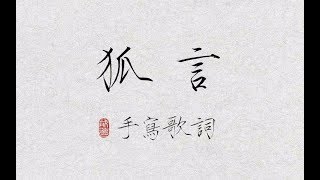 狐言
手寫歌詞